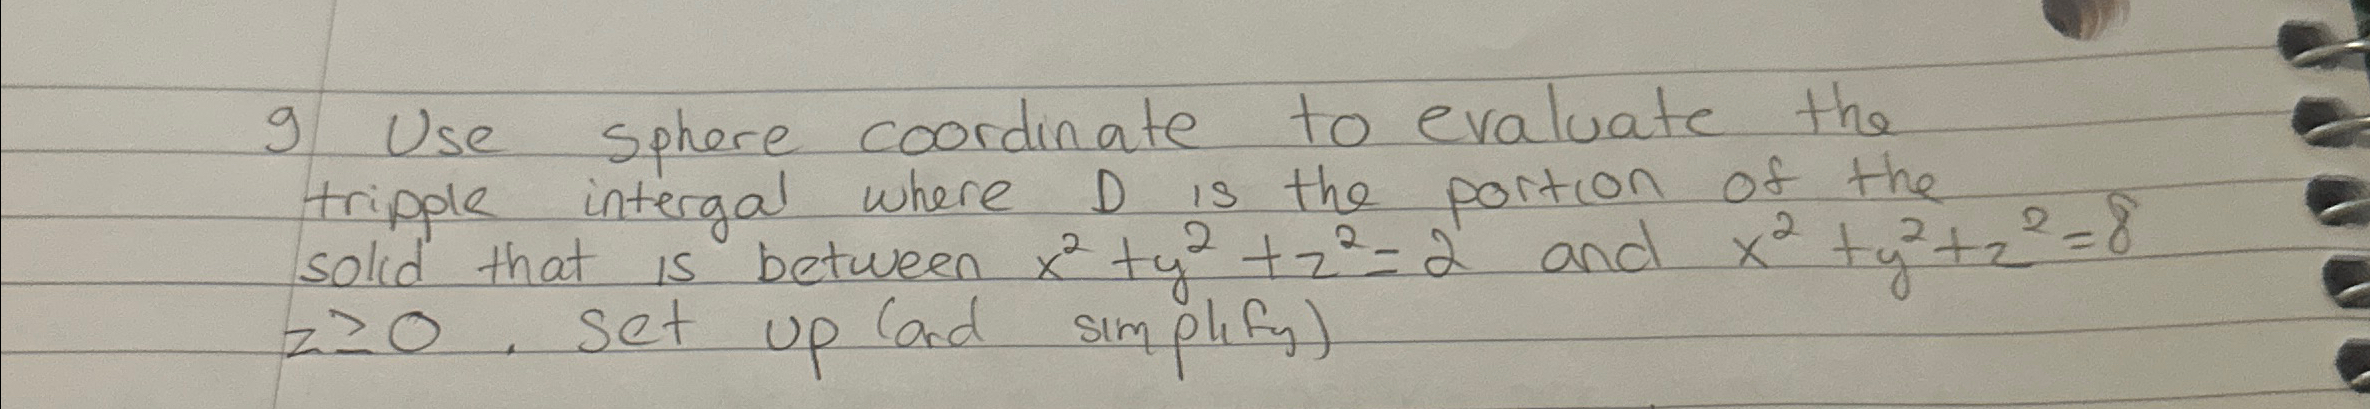 9 Use sphere coordinate to evaluate the
tripple intergal where D is the portion of the
solid that is between x² + y² + z² = 2 and x² + y² + z² = 8
z ≥ 0 . Set up (and simplify)